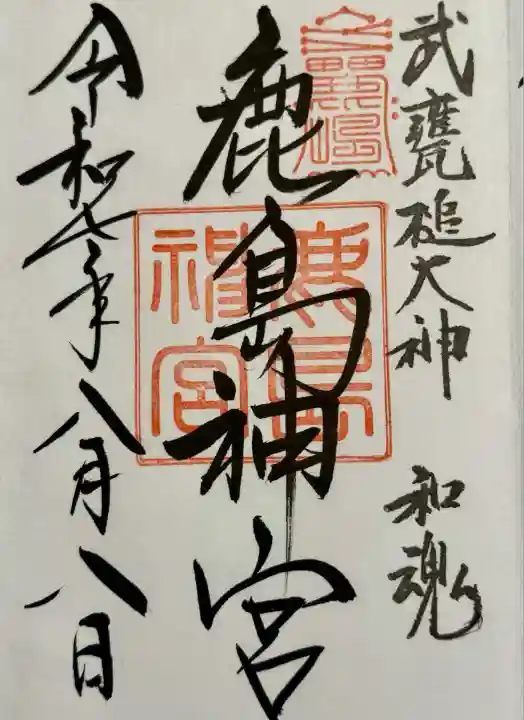 武甕槌大神 和魂
鹿島神宮
鹿島神宮
令和七年八月八日